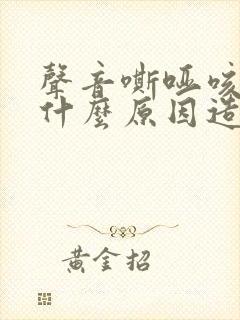 聲音嘶啞咳
什麼原因造
黃金招